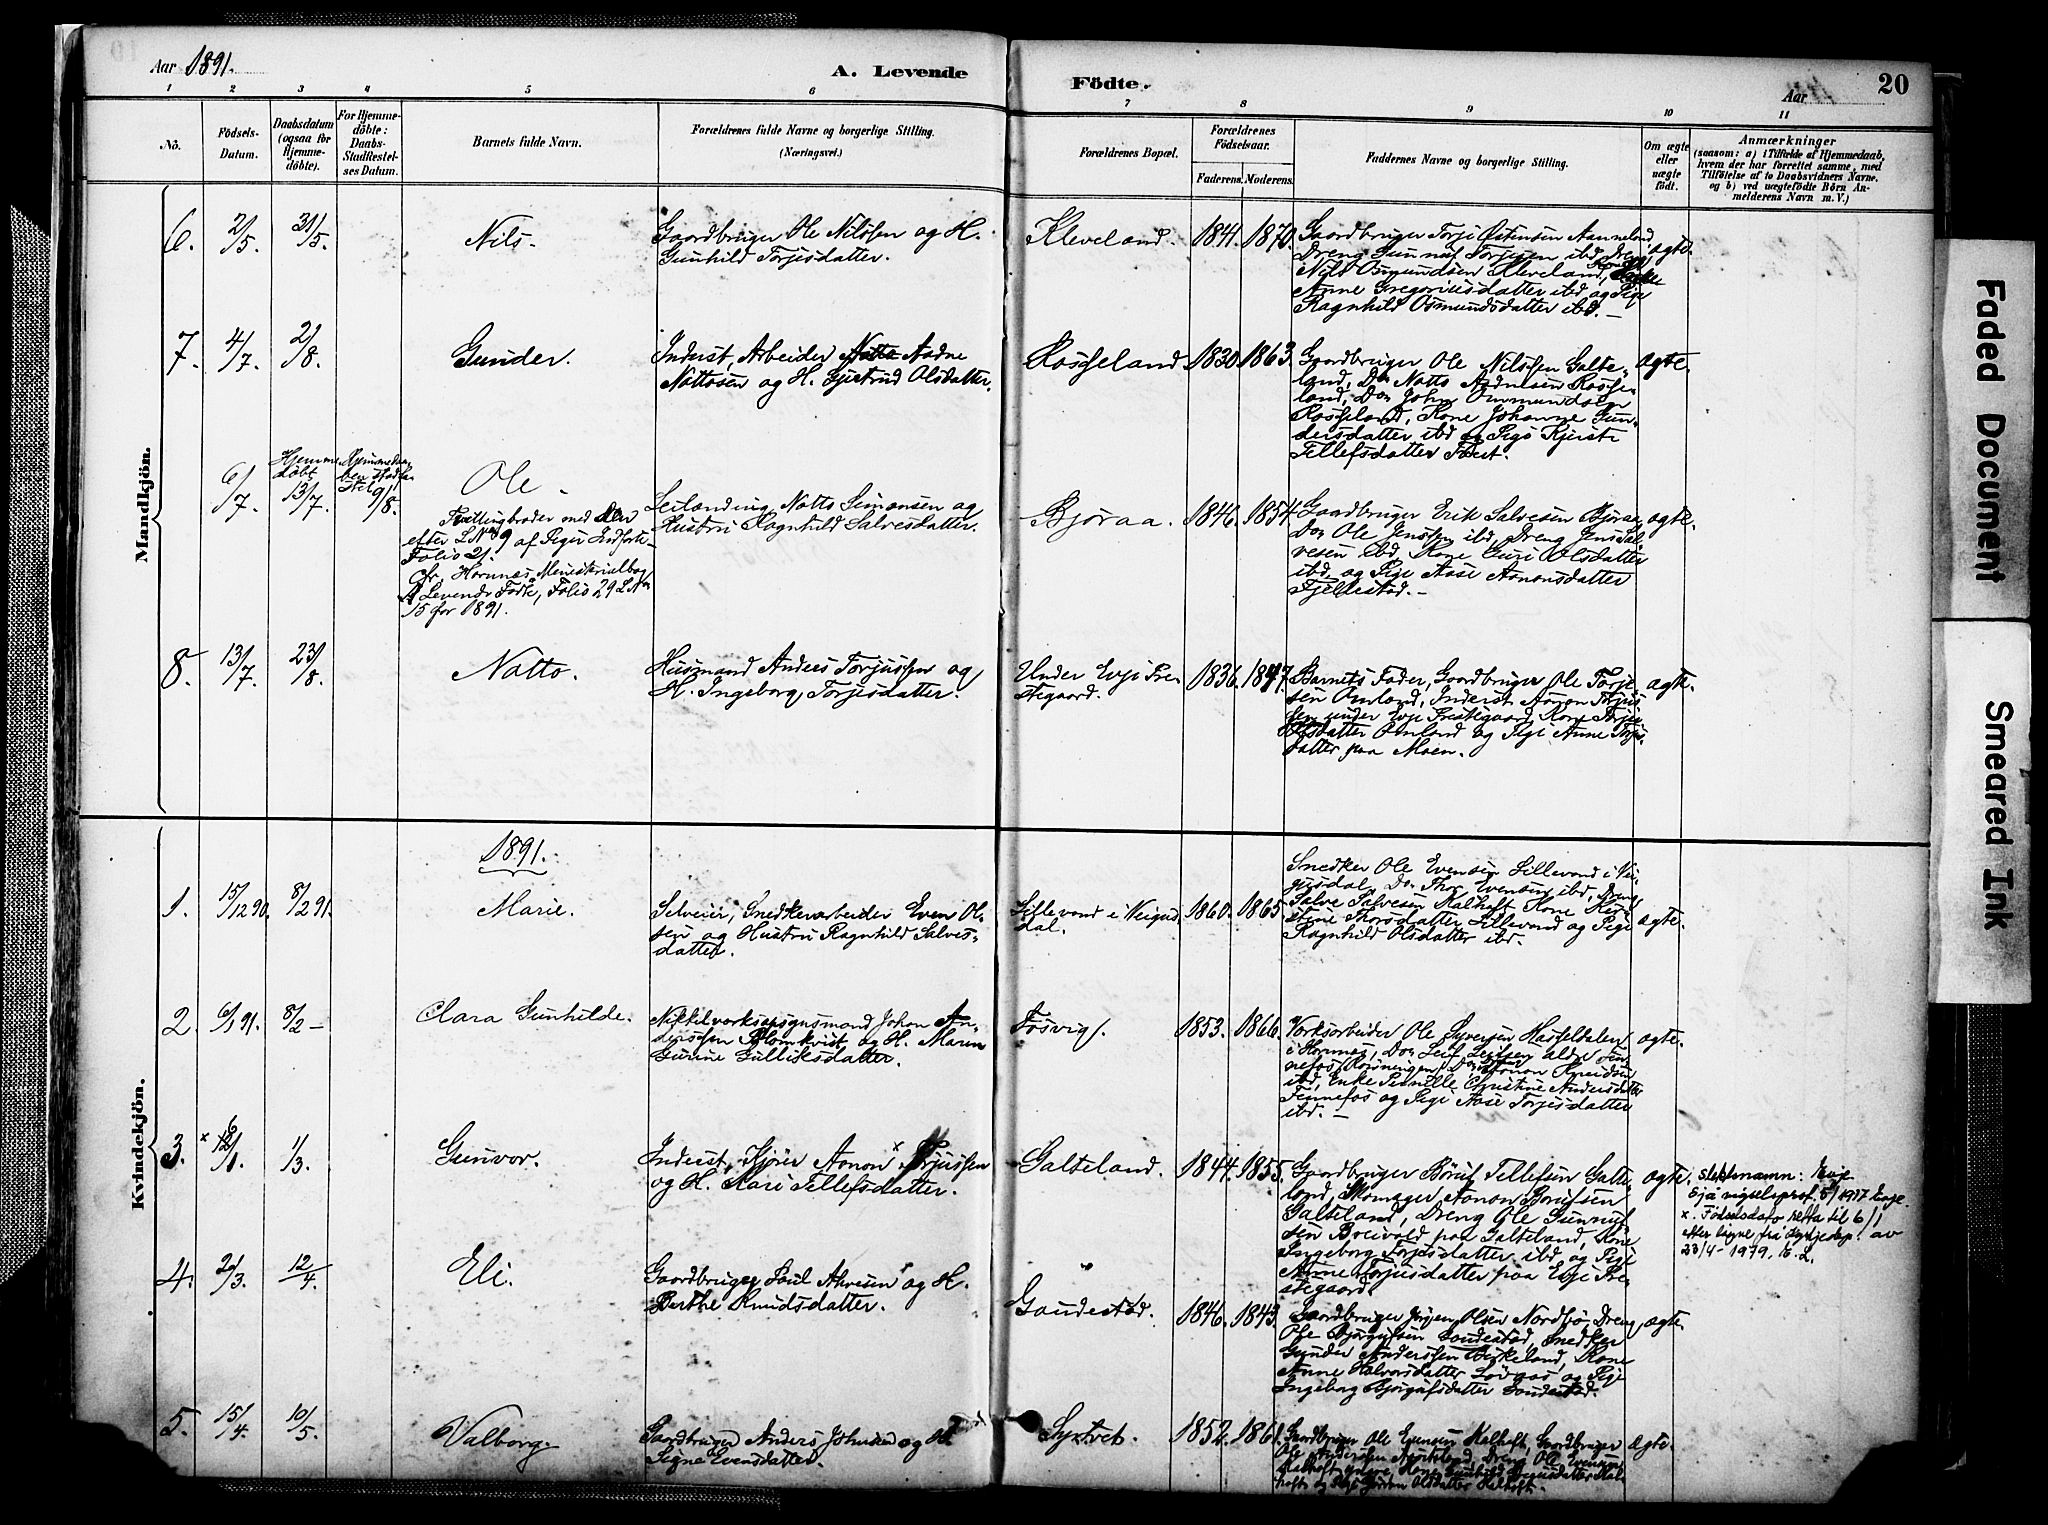 Aar 1891.
A. Levende
Födte.
Aar
20
1 2 3 4 5 6 7 8 9 10 11
No.
Födsels-
Datum.
Daabsdatum
(ogsaa for
Hjemme-
döbte).
For Hjemme-
döbte:
Daabs-
Stadfæstel-
ses Datum.
Barnets fulde Navn.
Forældrenes fulde Navne og borgerlige Stilling.
(Næringsvei.)
Forældrenes Bopæl.
Forældrenes
Födselsaar.
Faderens. Moderens.
Faddernes Navne og borgerlige Stilling.
Om ægte
eller
uægte
födt.
Anmærkninger
(saasom: a) i Tilfælde af Hjemmedaab,
hvem der har forrettet samme, med
Tilföielse af to Daabsvidners Navne,
og b) ved uægtefödte Börn An-
melderens Navn m. V.)
Mandkjön.
6. 2/5. 31/5. Nils.
Gaardbruger Ole Nilssen og H.
Gunhild Torjesdatter.
Kleveland. 1841. 1870.
Gaardbruger Torje Østensen Aanneland
Dreng Gunnuf Torjesen ibd, Dreng
Nils Osmundsen Kleveland, Kone
Anne Gregoriusdatter ibd og Pige
Ragnhild Osmundsdatter ibd.
ægte.
7. 4/7. 2/8. Gunder.
Inderst, Arbeider Aadne
Nottosen og H. Gjertrud Olsdatter.
Rosseland 1830. 1863.
Gaardbruger Ole Nilssen Galte-
land, Do Notto Aadnesen Rosse-
land, Do John Ommundsen
Rosseland, Kone Johanne Gun-
dersdatter ibd og Pige Kjersti
Tellefsdatter
ægte.
6/7. Hjemme
døbt
13/7. 9/8.
Ole
Tvillingbroder med den
efter L. No 9 af Piger Indførte
Folio 21.
cfr. Hornnæs Ministerialbog
A Levende Fødte, Folio 29 L No
15 for 1891.
Leilænding Notto Simonsen og
Hustru Ragnhild Salvesdatter.
Bjøraa. 1846. 1854.
Gaardbruger Erik Salvesen Bjøraa,
Do Ole Jenssen ibd, Dreng Jens Sal-
vesen ibd, Kone Guri Olsdatter
ibd, og Pige Aase Aanonsdatter
Fjellestad.
ægte.
8. 13/7. 23/8. Notto.
Husmand Anders Torjussen og
H. Ingeborg Torjesdatter.
Under Evje Præ-
stegaard. 1836. 1847.
Barnets Fader, Gaardbruger Ole Torje-
sen Omland, Inderst Aanon Torjus-
sen under Evje Præstegaard, Kone Torje
Olsdatter Omland og Pige Anne Torjus-
datter paa Moen.
ægte.
Kvindekjön.
1891.
1. 15/12 90. 8/2 91. Marie.
Selveier, Snedkerarbeider Even Ol-
sen og Hustru Ragnhild Salves-
datter.
Lillevand i Veigus-
dal. 1860. 1865.
Snedker Ole Evensen Lillevand i Vei-
gusdal, Do Thor Evensen ibd, Dreng
Salve Salvesen Kalheft, Kone Kir-
stene Thorsdatter Lillevand og Pige
Ragnhild Olsdatter ibd.
ægte.
2. 6/1 91. 8/2 Clara Gunhilde.
Nikkelverksbogmand Johan An-
derssen Blomkvist og H. Maren
Gurine Gulliksdatter.
Fosvig. 1853. 1866.
Verksarbeider Ole Syversen Hasseldalen
i Hornnes, Do Leif Leifsen ældre Fen-
nefos, Do Aanon Knudsen
ibd, Enke Pernille Christine Andersdatter
Fennefos og Pige Aase Torjesdatter
ibd.
ægte.
3. x 6/1. 1/3. Gunvor.
Inderst, Kjører Aanon x Torjussen
og H. Kari Tellefsdatter.
Galteland. 1844. 1855.
Gaardbruger Børuf Tellefsen Galte-
land, Skomager Aanon Børufsen
Galteland, Dreng Ole Gunnuf-
sen Breivold paa Galteland, Kone
Ingeborg Torjesdatter ibd og Pige
Anne Torjusdatter paa Evje Præ-
stegaard.
ægte.
slektsnamn: Evje
sjå vigselsprot. 5/1917 Evje.
x. Fødselsdato retta til 6/1
etter løyve frå Kyrkjedep. av
23/4-1979. K. L.
4. 20/3. 12/4. Eli.
Gaardbruger Paul Alvesen og H.
Berthe Knudsdatter.
Gaudestad. 1846. 1843.
Gaardbruger Jørgen Olsen Nordbø, Dreng
Ole Bjørgufsen Gaudestad, Snedker
Gunder Anderssen Birkeland, Kone
Anne Halvorsdatter Løvaas og Pige
Ingeborg Bjørgufsdatter Gaudestad.
ægte.
5. 15/4. 10/5. Valborg.
Gaardbruger Anders Johnsen og H.
Signe Evensdatter.
Syrtvet. 1852. 1861.
Gaardbruger Ole Evensen Kalheft, Gaardbruger
Ole Anderssen Dreng Ole Evensen
Kalheft
Pige Jorun Olsdatter Kalheft.
ægte
Faded Document
Smeared Ink